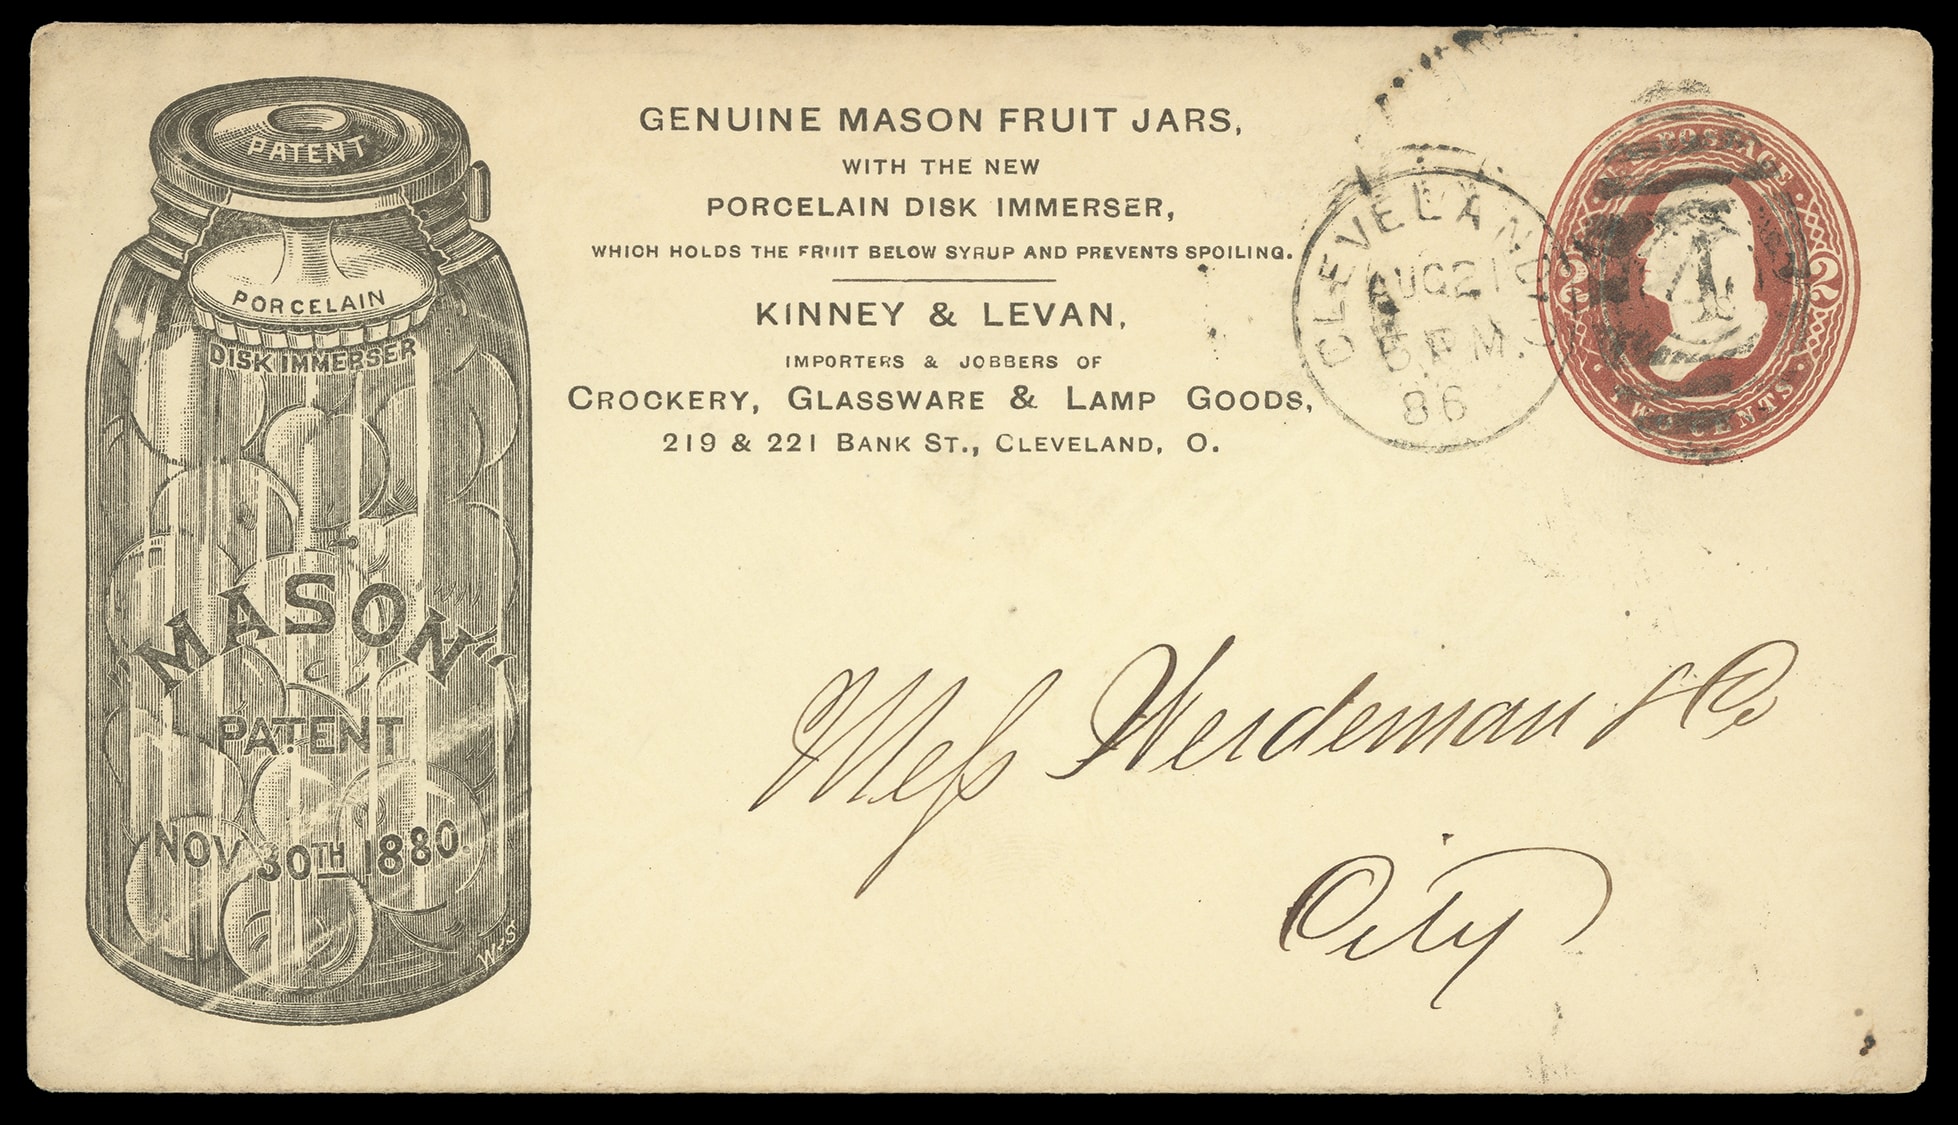 PATENT
PORCELAIN
DISK IMMERSER
"MASON"
PATENT
NOV 30TH 1880.
W&S
GENUINE MASON FRUIT JARS,
WITH THE NEW
PORCELAIN DISK IMMERSER,
WHICH HOLDS THE FRUIT BELOW SYRUP AND PREVENTS SPOILING.
KINNEY & LEVAN,
IMPORTERS & JOBBERS OF
CROCKERY, GLASSWARE & LAMP GOODS,
219 & 221 BANK ST., CLEVELAND, O.
CLEVELAND OHIO
AUG 21
5 PM.
86
U.S. POSTAGE
2 2
TWO CENTS
4
Mess Werdeman & Co
City